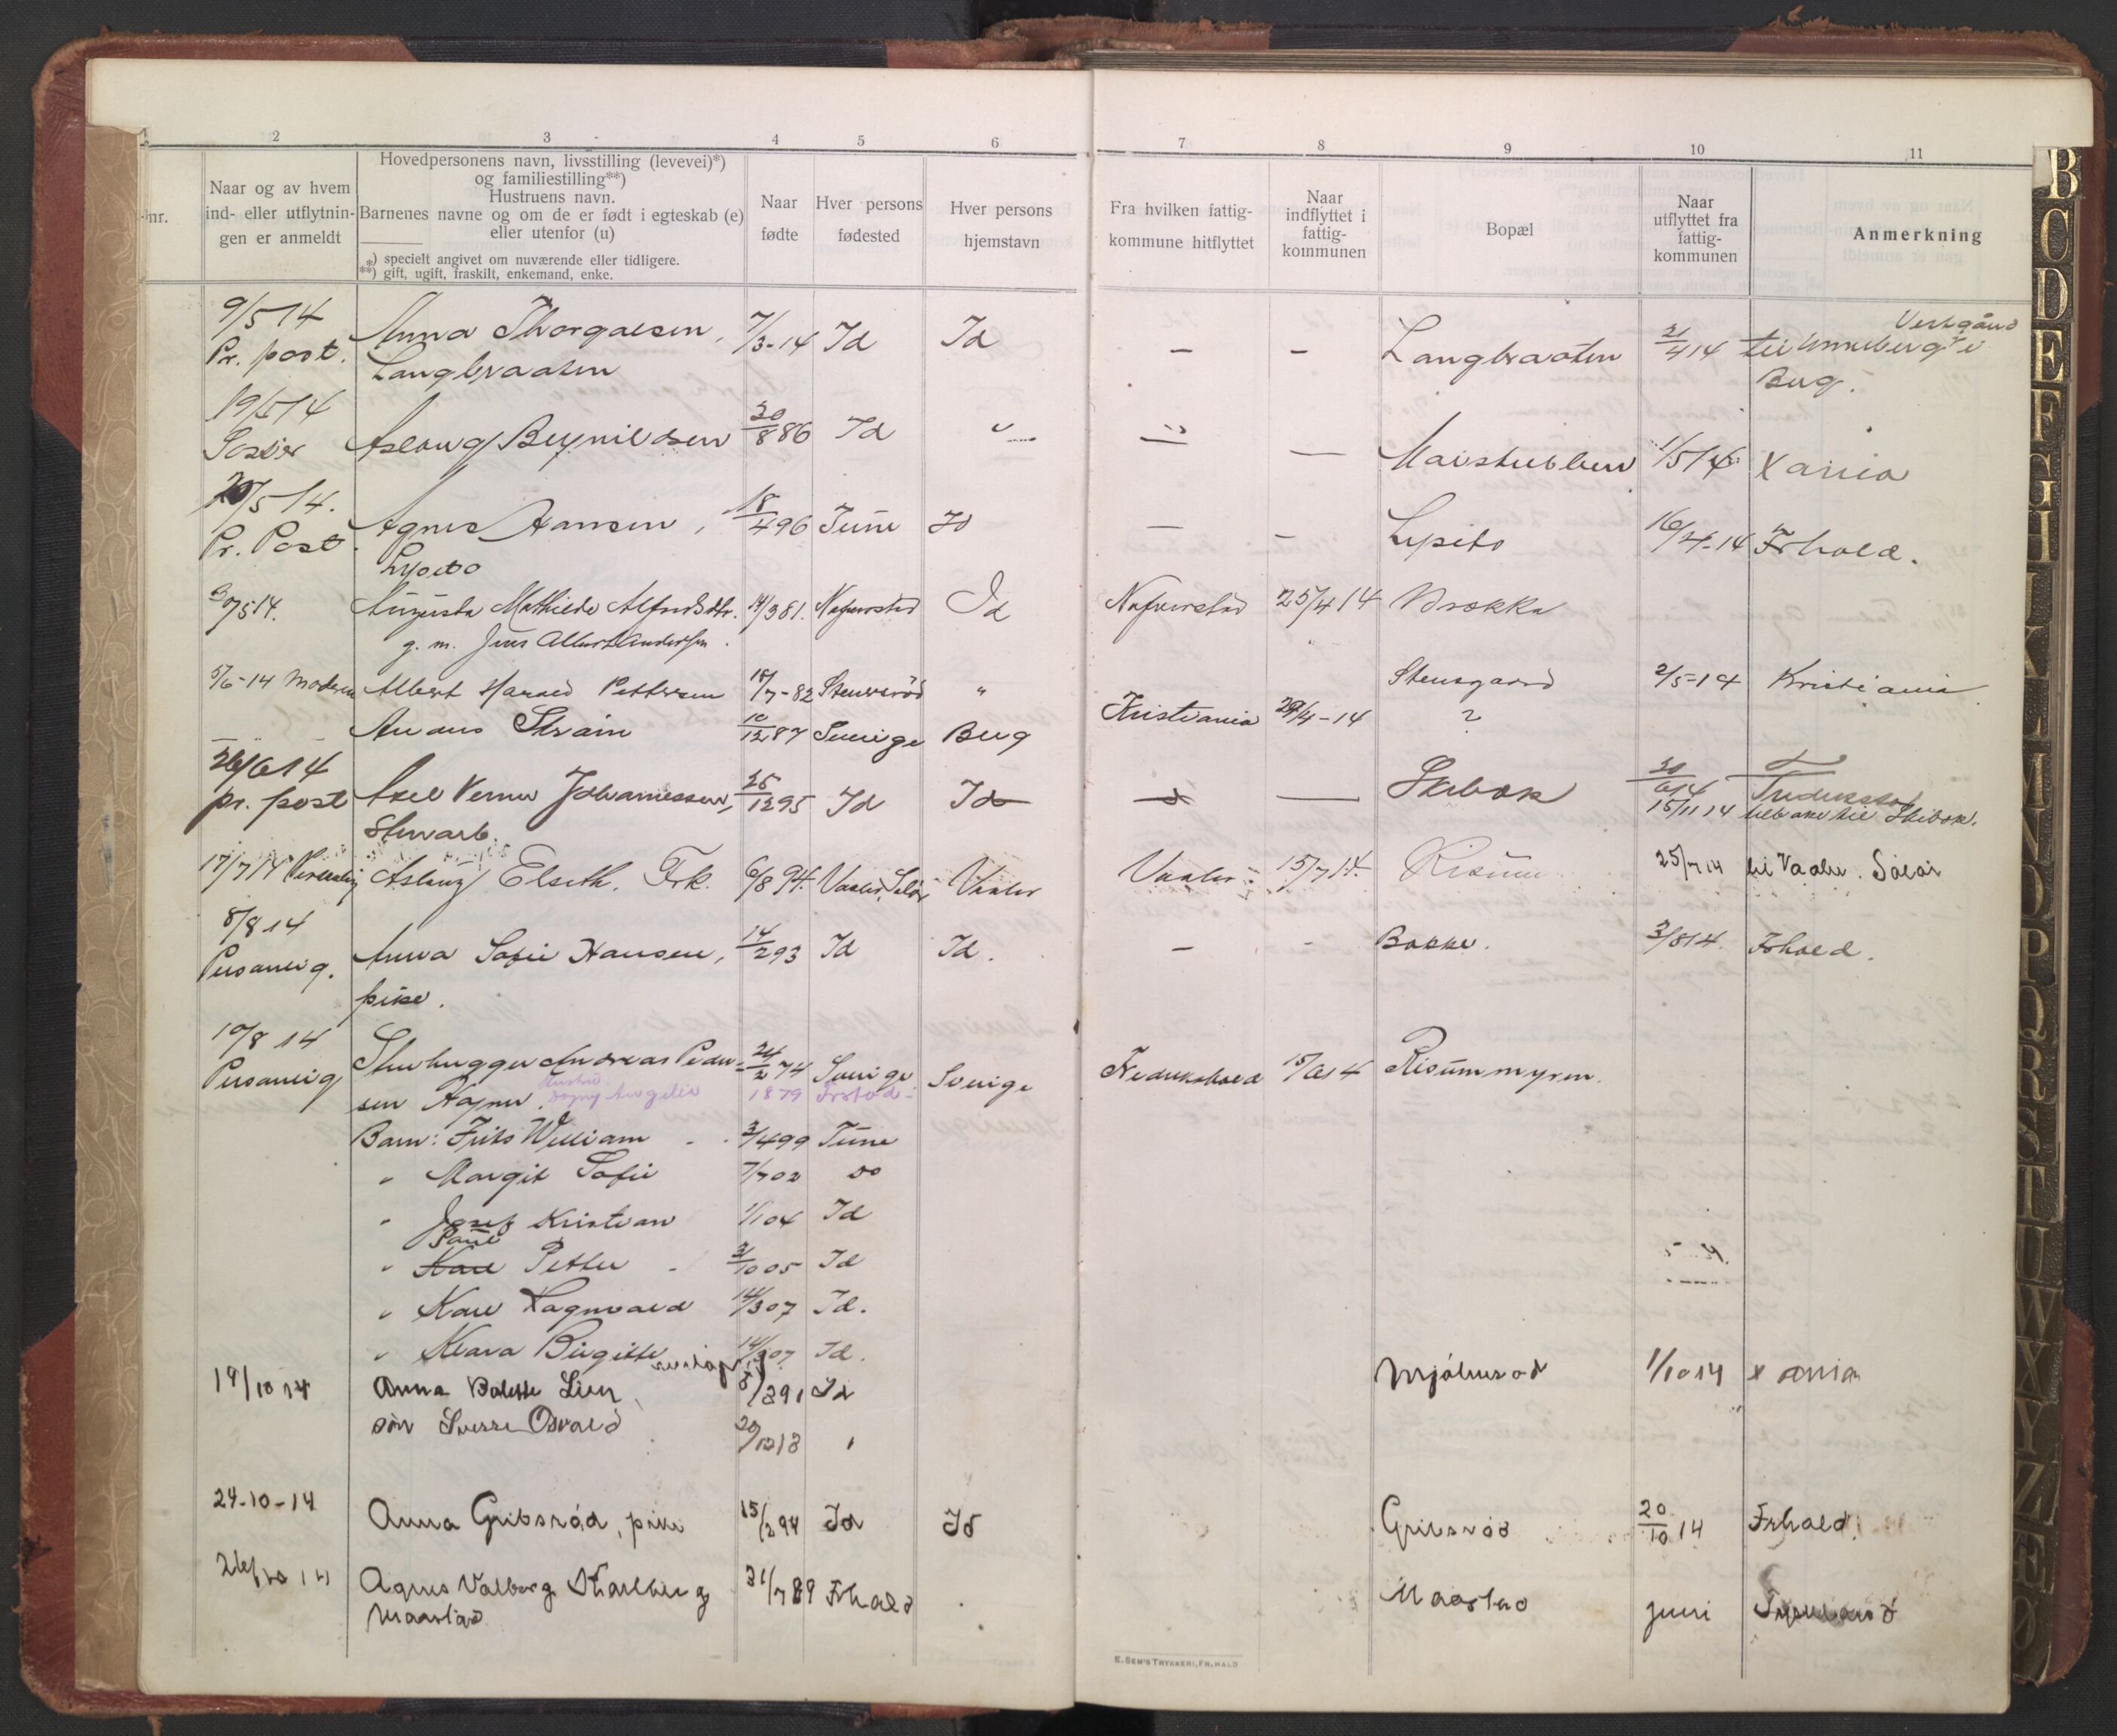 2 3 4 5 6 7 8 9 10 11
nr.
Naar og av hvem ind- eller utflytnin- gen er anmeldt
Hovedpersonens navn, livsstilling (levevei)*)
og familiestilling**)
Hustruens navn.
Barnenes navne og om de er født i egteskab (e)
eller utenfor (u)
*) specielt angivet om nuværende eller tidligere.
**) gift, ugift, fraskilt, enkemand, enke.
Naar fødte
Hver persons fødested
Hver persons hjemstavn
Fra hvilken fattig- kommune hitflyttet
Naar indflyttet i fattig- kommunen
Bopæl
Naar utflyttet fra fattig- kommunen
Anmerkning
9/5 14 Anna Thorgalsen, 7/3-14 Id Id — — Langbraaten 2/4 14 til Unneberg i
Pr. post. Langbraaten Berg.
19/5 14
Aslaug Beynildsen 20/8 86 Id — — 1/5 14 Xania
20/5 14. Agnes Hansen, 18/4 96 Tune Id — — Lyseto 16/4-14 Frhald.
Pr. Post. Lyseto
Augusta Mathilde Alfredsdtr. 14/3 81. Naverstad Id Naverstad 25/4 14 Brække
g. m. Jens Albert Andersen.
5/6-14 Moderen Albert Harald Pettersen 15/7-82 Stensrød " Stensgaard 2/5-14 Kristiania
Strøm 10/12 87 Sverige Berg Kristiania 29/4-14 ?
26/6 14
pr. post Axel Verner Johannessen, 25/12 95 Id Id — Skibæk 30/6 14 Fredrikstad
Stenarb. 15/11 14 tilbake til Skibæk.
17/7 14 Personlig Aslaug Elseth. Frk. 6/8 94. Vaaler, Solør Vaaler Vaaler 15/7 14. Risum 25/7 14 til Vaaler. Solør
8/8 14
Personlig. Anna Sofie Hansen, 14/2 93 Id Id. — - Bakke. 3/8 14. Frhald.
pike.
10/8 14 Stenhugger Andreas Peder- 24/2 74 Sverige Sverige Fredrikshald Risummyren.
Personlig sen Hustru Dagny Angelia 1879 Frstad.
Barn: Frits William 3/4 99 Tune
" Margit Sofie 7/7 02 do
" Josef Kristian 1/1 04 Id
Paul
" Karl Petter 2/10 05 Id
" Karl Ragnvald 14/3 07 Id.
" Klara Birgitte 14/3 07 Id.
19/10 14 Anna Bolette Lien 5/3 91 Id Mjølnerød 1/10 14 Xania
søn Sverre Osvald 20/12 13 "
24-10-14 Anna Gribsrød, pike 15/2 94 Id Id Gribsrød 20/10 14 Frhald.
26/10 14 Agnes Valborg Karlberg 31/7 89 Frhald Maastad juni
Maastad
K. SEM'S TRYKKERI, FR.HALD
B
C
D
E
F
G
H
I
J
K
L
M
N
O
P
Q
R
S
T
U
V
W
X
Y
Z
Æ
Ø